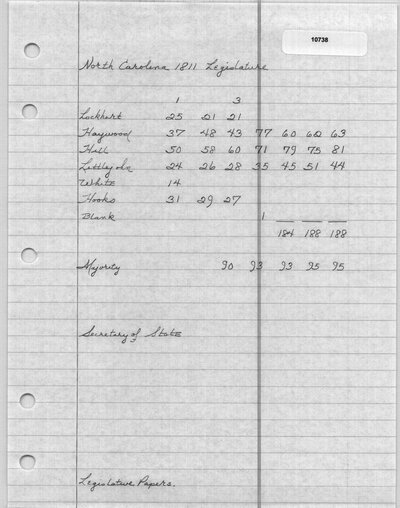 10738
North Carolina 1811 Legislature
1 3
Lockhart 25 21 21
Haywood 37 48 43 77 60 62 63
Hill 50 58 60 71 79 75 81
Littlejohn 24 26 28 35 45 51 44
White 14
Hooks 31 29 27
Blank 1
184 188 188
Majority 90 93 93 95 95
Secretary of State
Legislative Papers.